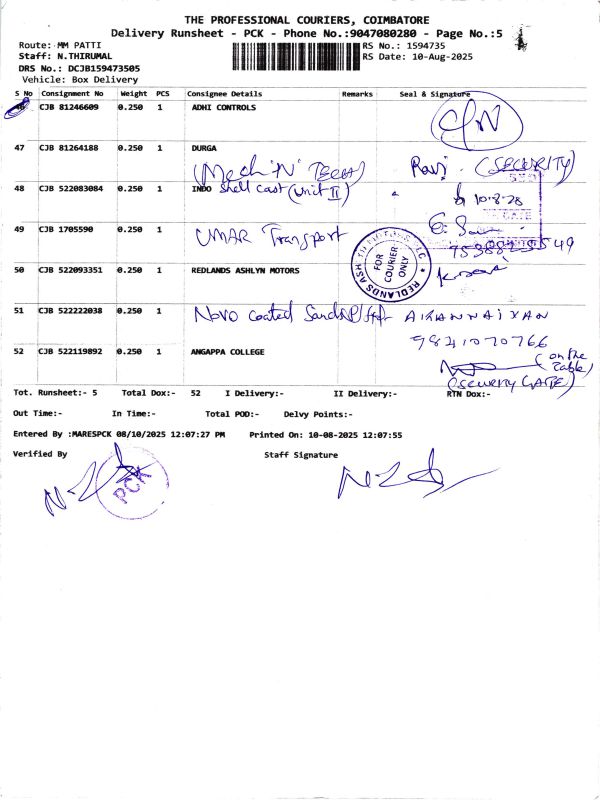 THE PROFESSIONAL COURIERS, COIMBATORE
Delivery Runsheet - PCK - Phone No.:9047080280 - Page No.:5
Route: MM PATTI
RS No.: 1594735
Staff: N.THIRUMAL
RS Date: 10-Aug-2025
DRS No.: DCJB159473505
Vehicle: Box Delivery
S No Consignment No Weight PCS Consignee Details Remarks Seal & Signature
46 CJB 81246609 0.250 1 ADHI CONTROLS
47 CJB 81264188 0.250 1 DURGA
(Mech 'N' TECH) Ravi. (SECURITY)
48 CJB 522083084 0.250 1 INDO Shell cast (Unit II)
49 CJB 1705590 0.250 1 UMAR Transport
REDLANDS
FOR COURIER ONLY
50 CJB 522093351 0.250 1 REDLANDS ASHLYN MOTORS
51 CJB 522222038 0.250 1 Novo coated Sand
52 CJB 522119892 0.250 1 ANGAPPA COLLEGE
(on the Table)
(SECURITY GATE)
Tot. Runsheet:- 5 Total Dox:- 52 I Delivery:- II Delivery:- RTN Dox:-
Out Time:- In Time:- Total POD:- Delvy Points:-
Entered By :MARESPCK 08/10/2025 12:07:27 PM Printed On: 10-08-2025 12:07:55
Verified By Staff Signature
PCK